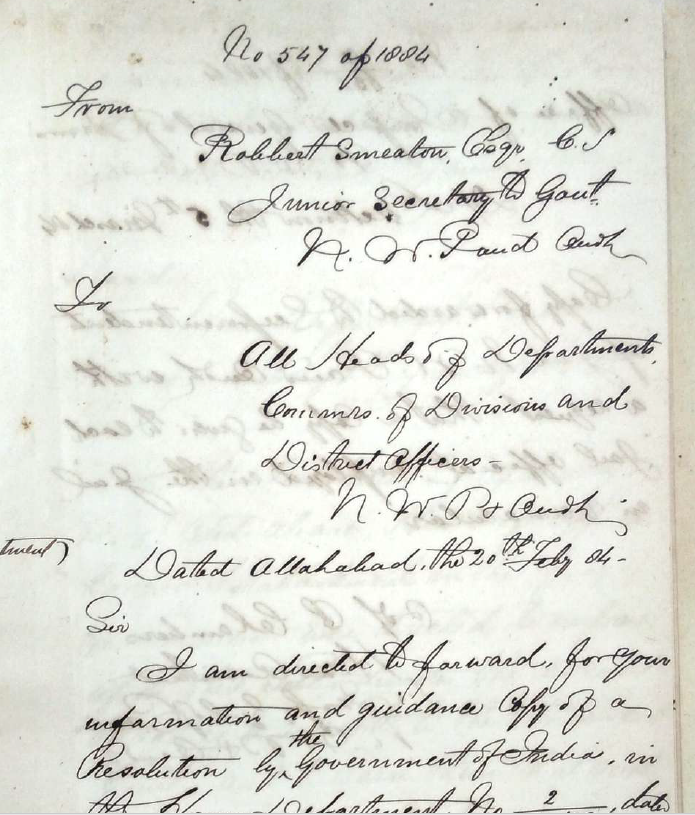 No 547 of 1884
From
Robbert Smeaton, Esqr. C. S
Junior Secretary to Govt.
N. W. P and Oudh
To
All Heads of Departments,
Commrs. of Divisions and
District Officers -
N. W. P & Oudh
tment)
Dated Allahabad, the 20th Feby 84 -
Sir
I am directed to forward, for your
information and guidance Copy of a
Resolution by the Government of India, in
the Home Department, No 2 dated